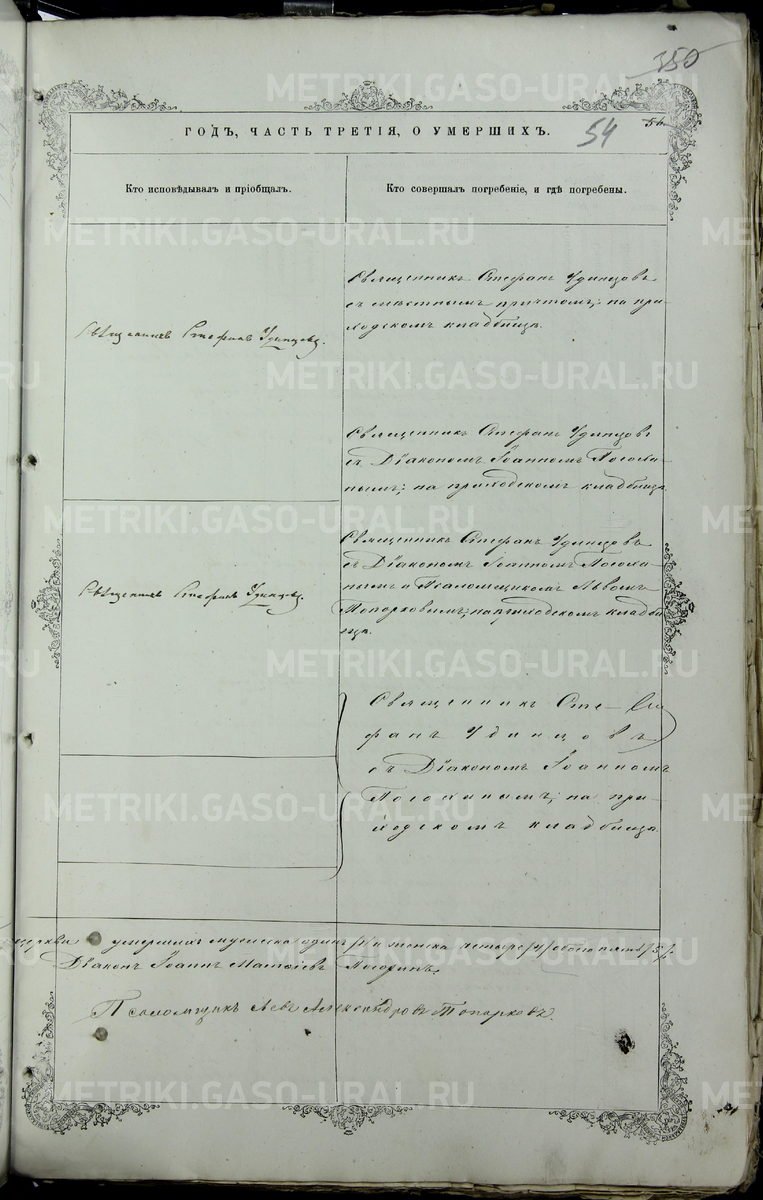 350
ГОДЪ, ЧАСТЬ ТРЕТІЯ, О УМЕРШИХЪ.
54
54
Кто исповѣдывалъ и пріобщалъ.
Кто совершалъ погребеніе, и гдѣ погребены.
Священникъ Стефанъ Удинцовъ.
Священникъ Стефанъ Удинцовъ
съ мѣстнымъ причтомъ; на при-
ходскомъ кладбищѣ.
Священникъ Стефанъ Удинцовъ
съ Діакономъ Іоанномъ Посохи-
нымъ; на приходскомъ кладбищѣ
Священникъ Стефанъ Удинцовъ.
Священникъ Стефанъ Удинцовъ
съ Діакономъ Іоанномъ Посохи-
нымъ и Псаломщикомъ Львомъ
Топорковымъ; на приходскомъ кладби-
щѣ.
Священникъ Сте-
фанъ Удинцовъ
съ Діакономъ Іоанномъ
Посохинымъ; на при-
ходскомъ кладбищѣ
умершихъ мужеска одинъ /1/ и женска четыре /4/ обоего пять /5/.
Діаконъ Іоаннъ Матѳіевъ Посохинъ.
Псаломщикъ Левъ Александровъ Топорковъ.
METRIKI.GASO-URAL.RU